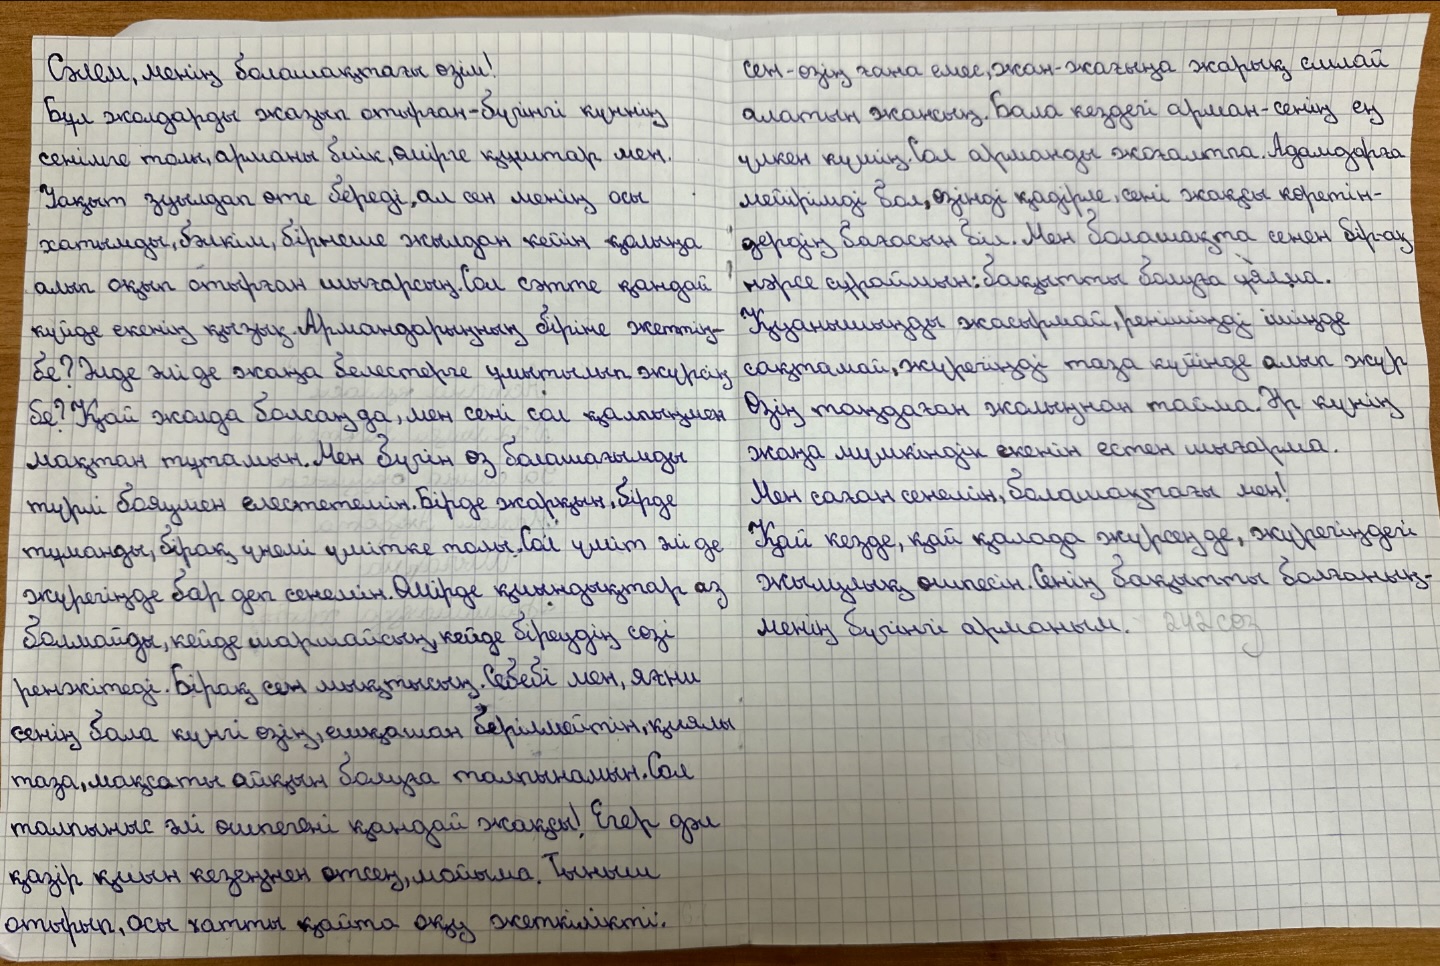 Сәлем, менің болашақтағы өзім!
Бұл жолдарды жазып отырған-бүгінгі күннің
сенімге толы, арманы биік, өмірге құштар мен.
Уақыт зуылдап өте береді, ал сен менің осы
хатымды, бәлкім, бірнеше жылдан кейін қолыңа
алып оқып отырған шығарсың. Сол сәтте қандай
күйде екенің қызық. Армандарыңның біріне жеттің-
бе? Әлде әлі де жаңа белестерге ұмытылып жүрсің
бе? Қай жолда болсаңда, мен сені сол қалпыңмен
мақтан тұтамын. Мен бүгін өз болашағымды
түрлі бояумен елестетемін. Бірде жарқын, бірде
тұманды, бірақ үнемі үмітке толы. Сол үміт әлі де
жүрегіңде бар деп сенемін. Өмірде қиындықтар аз
болмайды, кейде шаршайсың, кейде біреудің сөзі
ренжітеді. Бірақ сен мықтысың. Себебі мен, яғни
сенің бала күнгі өзің, ешқашан берілмейтін, қиялы
таза, мақсаты айқын болуға талпынамын. Сол
талпыныс әлі өшпегені қандай жақсы! Егер дәл
қазір қиын кезеңнен өтсең, мойыма. Тыныш
отырып, осы хатты қайта оқу жеткілікті.
сен-өзің ғана емес, жан-жағыңа жарық сыйлай
алатын жансың. Бала кездегі арман-сенің ең
үлкен күшің. Сол арманды жоғалтпа. Адамдарға
мейірімді бол, өзіңді қадірле, сені жақсы көретін-
дердің бағасын біл. Мен болашақта сенен бір-ақ
нәрсе сұраймын: бақытты болуға ұялма.
Қуанышыңды жасырмай, ренішіңді ішіңде
сақтамай, жүрегіңді таза күйінде алып жүр
Өзің таңдаған жолыңнан тайма. Әр күнің
жаңа мүмкіндік екенін естен шығарма.
Мен саған сенемін, болашақтағы мен!
Қай кезде, қай қалада жүрсең де, жүрегіңдегі
жылулық өшпесін. Сенің бақытты болғаның-
менің бүгінгі арманым. 242 сөз